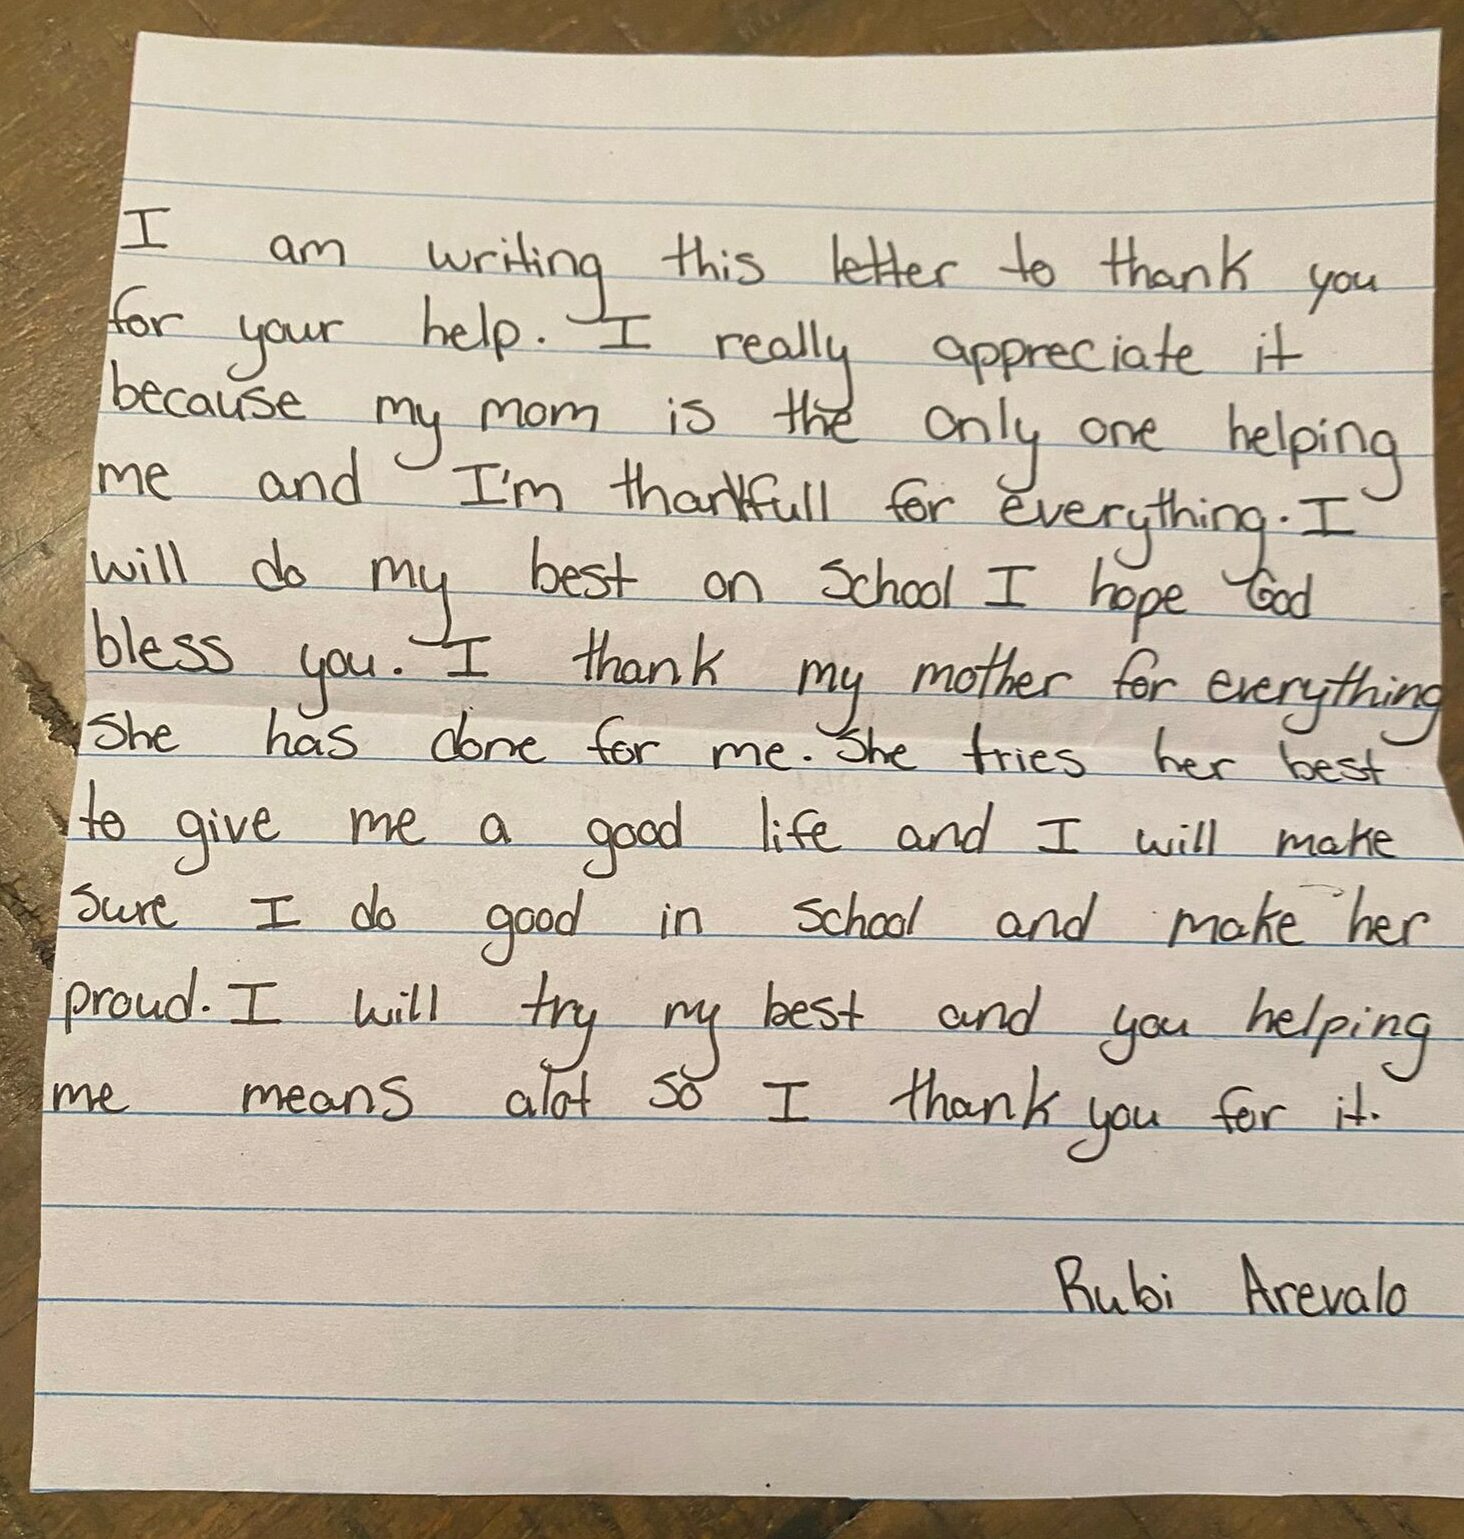 I am writing this letter to thank you
for your help. I really appreciate it
because my mom is the only one helping
me and I'm thankfull for everything. I
will do my best on school I hope God
bless you. I thank my mother for everything
she has done for me. She tries her best
to give me a good life and I will make
sure I do good in school and make her
proud. I will try my best and you helping
me means alot so I thank you for it.
Rubi Arevalo